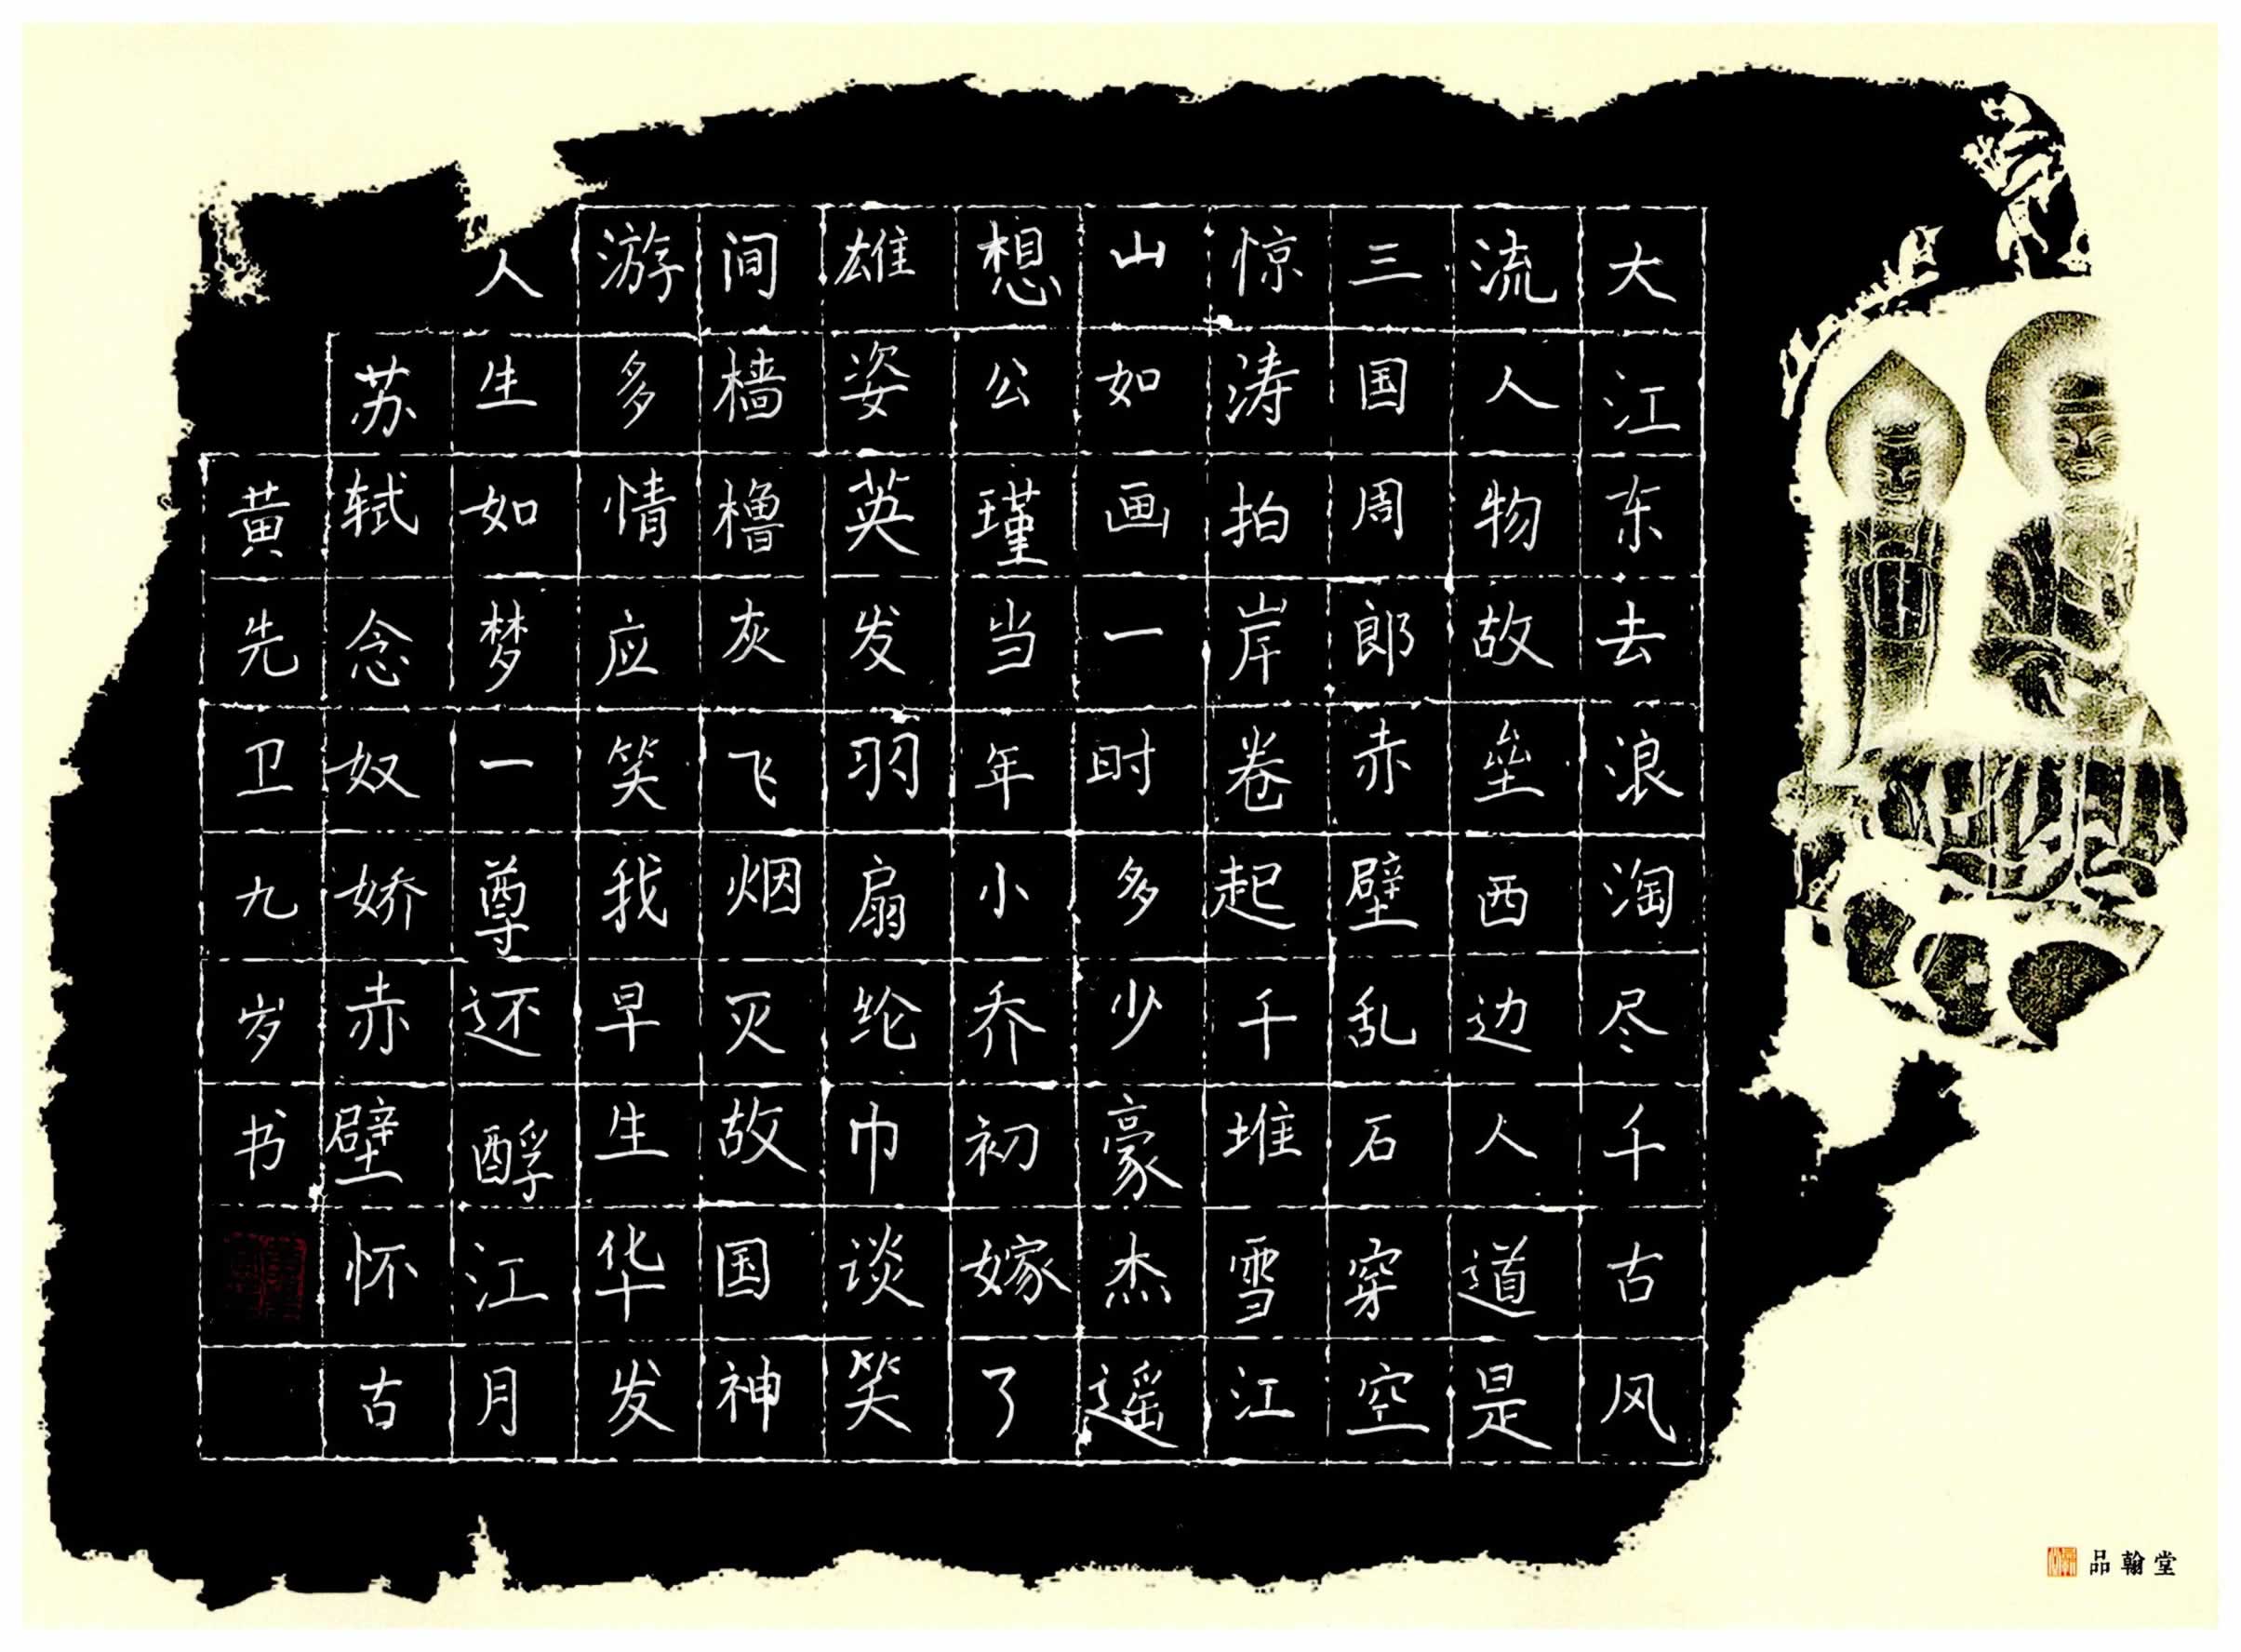 大江东去浪淘尽千古风
流人物故垒西边人道是
三国周郎赤壁乱石穿空
惊涛拍岸卷起千堆雪江
山如画一时多少豪杰遥
想公瑾当年小乔初嫁了
雄姿英发羽扇纶巾谈笑
间樯橹灰飞烟灭故国神
游多情应笑我早生华发
人生如梦一尊还酹江月
苏轼念奴娇赤壁怀古
黄先卫九岁书
品翰堂